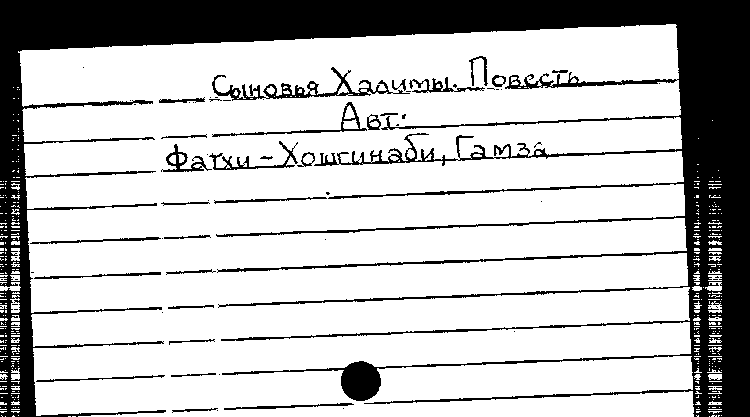 Сыновья Халимы. Повесть
Авт.:
Фатхи-Хошгинаби, Гамза